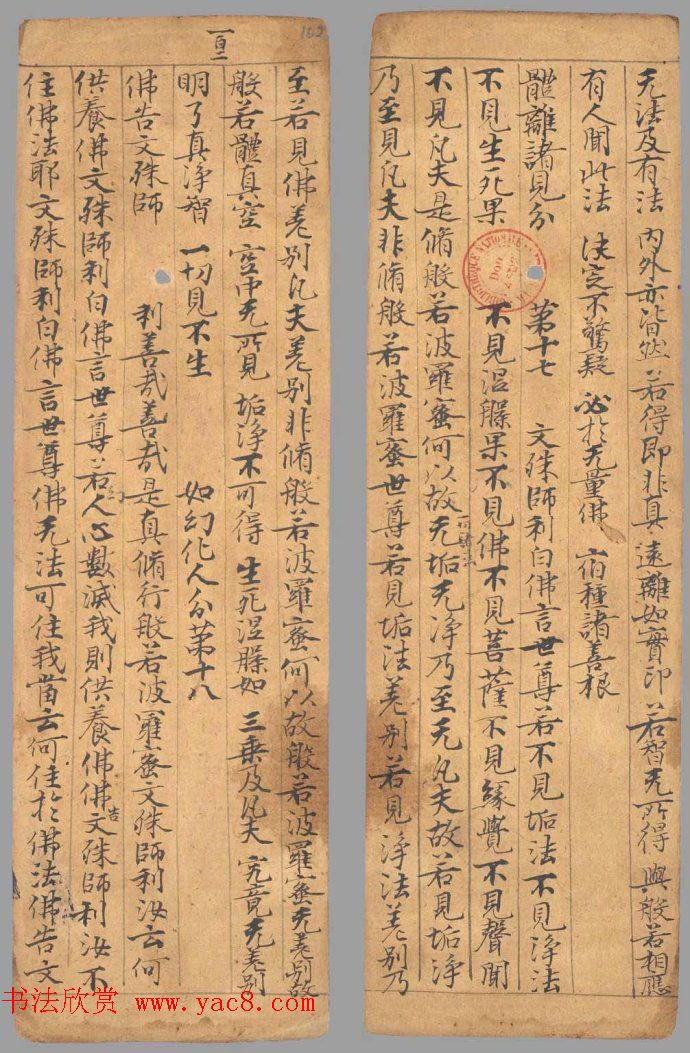 无法及有法 內外亦皆然 若得即非真 遠離如實印 若智无所得 與般若相應
有人聞此法 決定不驚疑 必於无量佛 宿種諸善根
體離諸見分 第十七 文殊師利白佛言世尊若不見垢法不見淨法
不見生死果 不見涅槃果不見佛不見菩薩不見緣覺不見聲聞
不見凡夫是脩般若波羅蜜何以故一切諸法无垢无淨乃至无凡夫故若見垢淨
乃至見凡夫非脩般若波羅蜜世尊若見垢法差別若見淨法差別乃
一百二
102
至若見佛差別凡夫差別非脩般若波羅蜜何以故般若波羅蜜无差別故
般若體真空 空中无所見 垢淨不可得 生死涅槃如 三乘及凡夫 究竟无差別
明了真淨智 一切見不生 如幻化人分第十八
佛告文殊師 利善哉善哉是真脩行般若波羅蜜文殊師利汝云何
供養佛文殊師利白佛言世尊若幻人心數滅我則供養佛佛告文殊師利汝不
住佛法耶文殊師利白佛言世尊佛无法可住我當云何住於佛法佛告文
书法欣赏 www.yac8.com